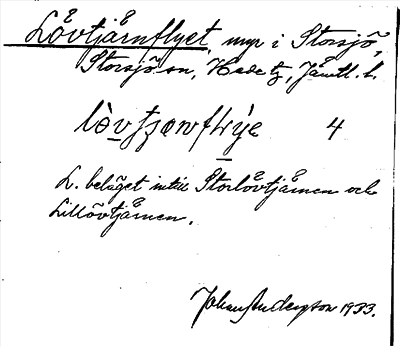 Lövtjärnflyet, myr i Storsjö,
Storsjö sn, Hede tg, Jämtl. l.
4
L. beläget intill Storlövtjärnen och
Lillövtjärnen.
Johan Anderzson 1933.